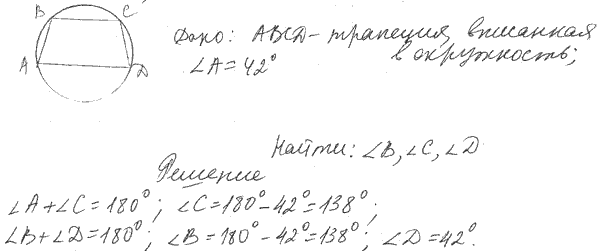 B C
Дано: ABCD - трапеция, вписанная
в окружность;
A D
∠A = 42°
Найти: ∠B, ∠C, ∠D
Решение
∠A + ∠C = 180°; ∠C = 180° - 42° = 138°;
∠B + ∠D = 180°; ∠B = 180° - 42° = 138°; ∠D = 42°.